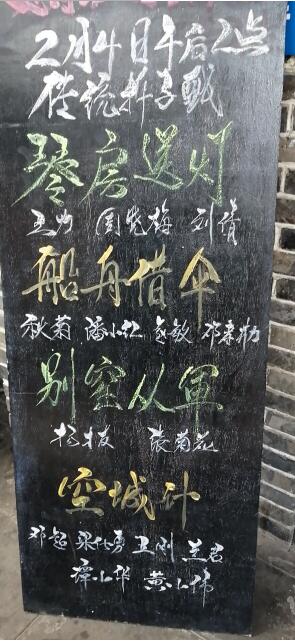 2月4日午后2点
传统折子戏
琴房送灯
王力 周晓梅 刘倩
船舟借伞
秋菊 潘小红 敏 邓
别窑从军
杨枝 张菊花
空城计
邓超 梁 勇 王刚 兰君
谭小华 黄小伟